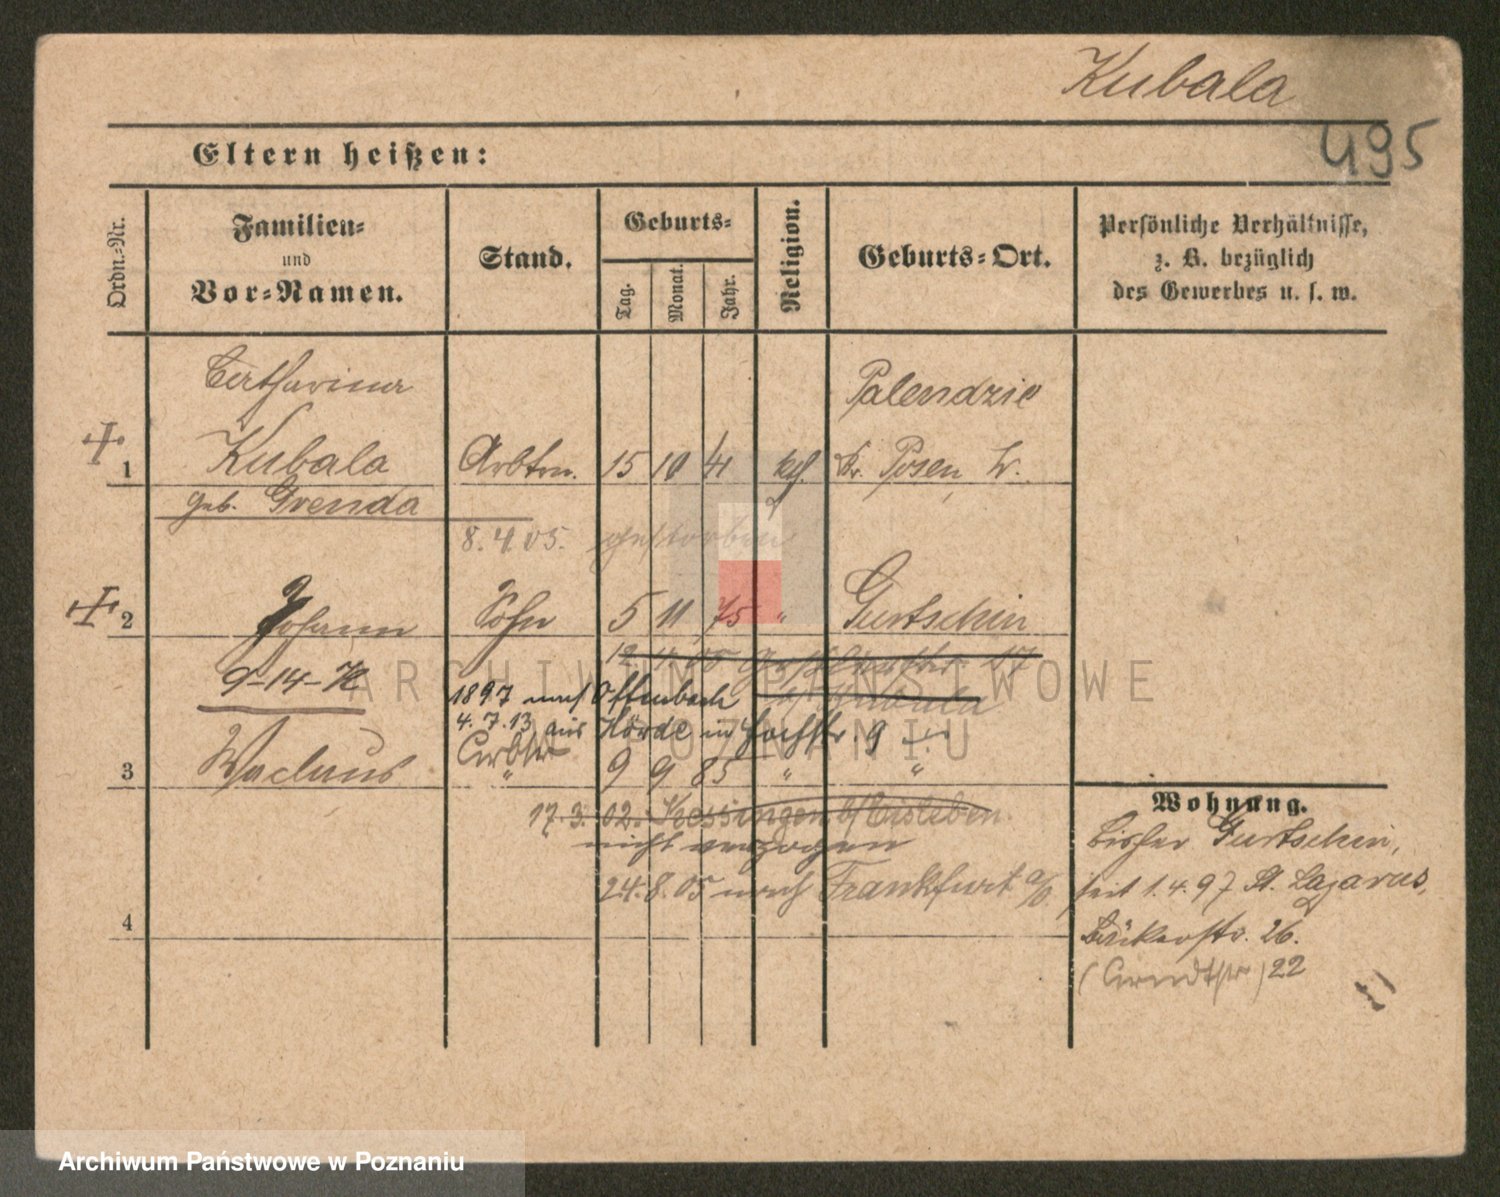 Kubala
495
Eltern heißen:
Ordn.-Nr.
Familien-
und
Vor-Namen.
Stand.
Geburts-
Tag.
Monat.
Jahr.
Religion.
Geburts-Ort.
Persönliche Verhältnisse,
z. B. bezüglich
des Gewerbes u. s. w.
Catharina
Palendzie
1 Kubala Arbtrn. 15 10 41 kth. Kr. Posen, W.
geb. Grenda
8.4.05. gestorben
2 Johann Sohn 5 11 75 " Gurtschin
12. 4. 05 17
9-14-K
1897 nach Offenbach b/ Kubala
4.7.13 aus Hörde in Hochstr. 9
Arbtr
3 Waclaus " 9 9 85 " "
17.3.02. Kessingen b/ Eisleben.
nicht verzogen
24.8.05 nach Frankfurt a/O.
4
Wohnung.
bisher Gurtschin,
seit 1.4.97 St. Lazarus,
Bäckerstr. 26.
(Arndtstr) 22
ARCHIWUM PAŃSTWOWE
W POZNANIU
Archiwum Państwowe w Poznaniu